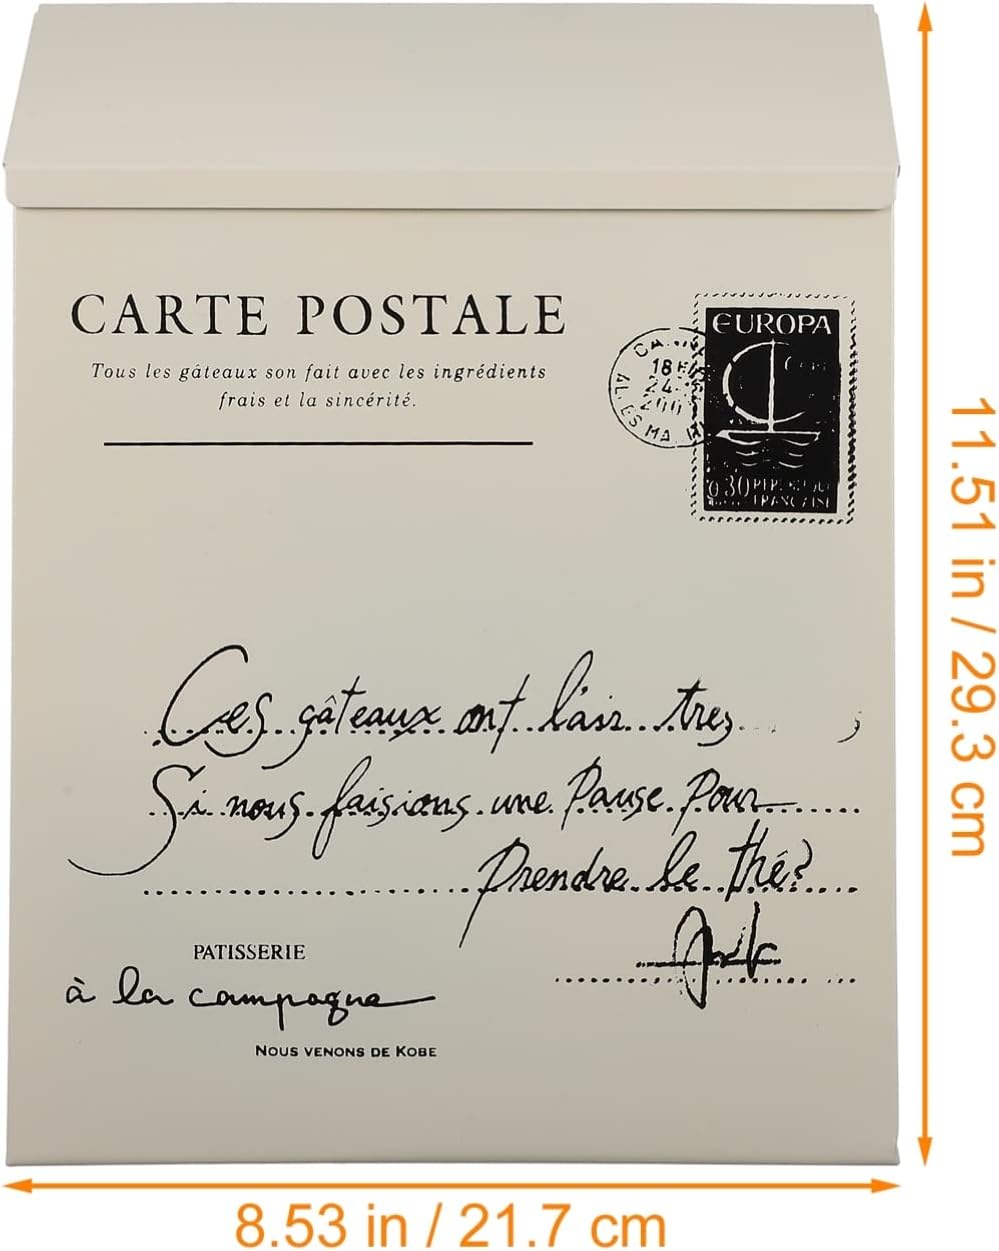 CARTE POSTALE
Tous les gâteaux son fait avec les ingrédients
frais et la sincérité.
18 H
24
EUROPA
0,30
FRANÇAISE
Ces gâteaux ont l'air très
Si nous faisions une Pause Pour
Prendre le thé?
PATISSERIE
à la campagne
NOUS VENONS DE KOBE
11.51 in / 29.3 cm
8.53 in / 21.7 cm